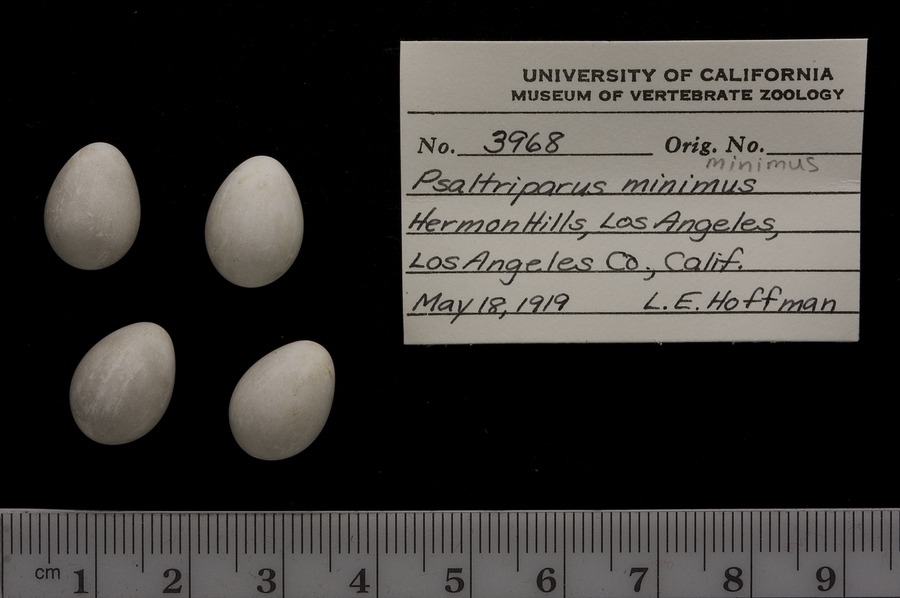 UNIVERSITY OF CALIFORNIA
MUSEUM OF VERTEBRATE ZOOLOGY
No. 3968 Orig. No.
minimus
Psaltriparus minimus
Hermon Hills, Los Angeles,
Los Angeles Co., Calif.
May 18, 1919 L.E. Hoffman
cm 1 2 3 4 5 6 7 8 9